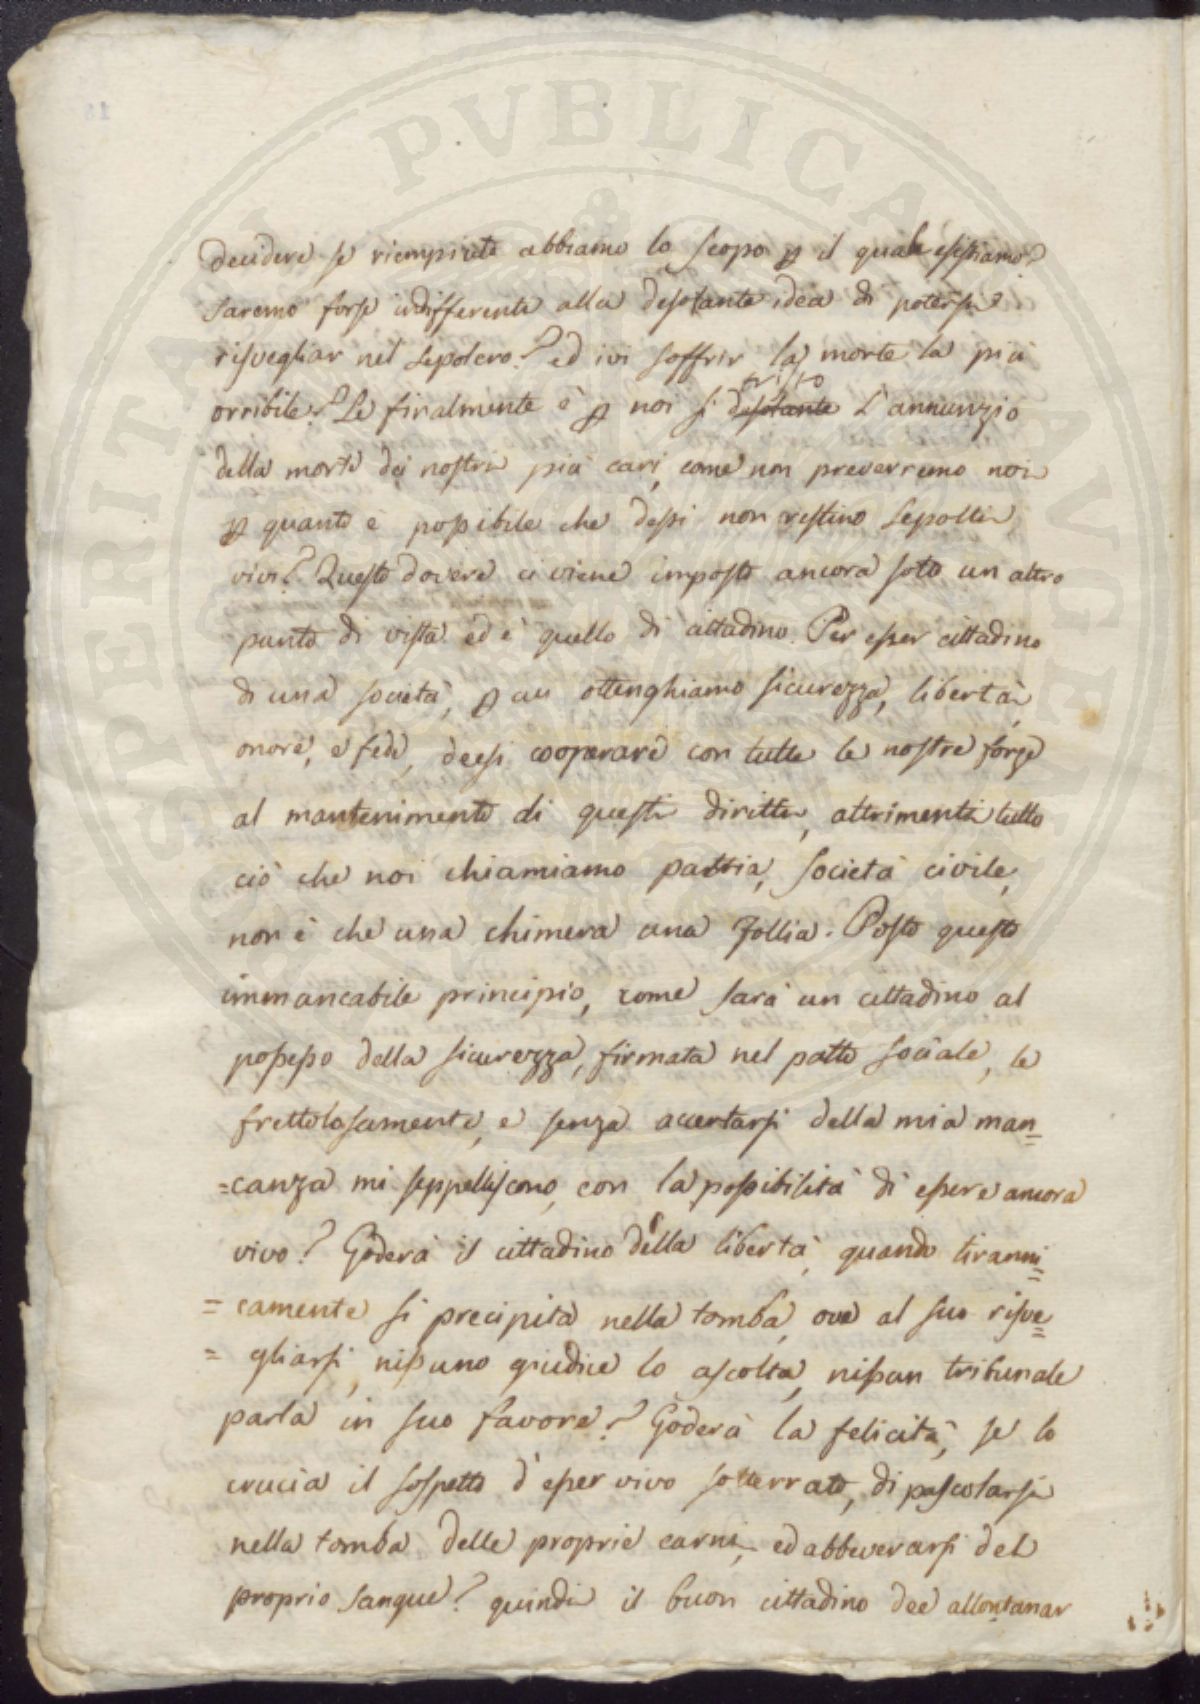 PVBLICAE
PROSPERITATI
AVGENDAE
decidere, se riempiuto abbiamo lo scopo ꝑ il quale esistiamo?
saremo forse indifferenti alla desolante idea di potersi
risvegliar nel sepolcro? ed ivi soffrir la morte la più
orribile? Se finalmente è ꝑ noi sì desolante tristo l'annunzio
della morte dei nostri più cari, come non preverremo noi
ꝑ quanto è possibile che dessi non restino sepolti
vivi? Questo dovere ci viene imposto ancora soto un altro
punto di vista ed è quello di cittadino. Per esser cittadino
di una società, ꝑ cui ottenghiamo sicurezza, libertà,
onore, e fede, deesi cooperare con tutte le nostre forze
al mantenimento di questi diritti, altrimenti tutto
ciò che noi chiamiamo patria, società civile,
non è che una chimera una follia. Posto questo
immancabile principio, come sarà un cittadino al
possesso della sicurezza, firmata nel patto sociale, se
frettolosamente, e senza accertarsi della mia man=
=canza mi seppelliscono, con la possibilità di essere ancora
vivo? Goderà il cittadino della libertà, quando tiranni=
=camente si precipita nella tomba, ove al suo risve=
=gliarsi, nissuno giudice lo ascolta, nissun tribunale
parla in suo favore? Goderà la felicità, se lo
crucia il sospetto d'esser vivo sotterrato, di pascolarsi
nella tomba delle proprie carni, ed abbeverarsi del
proprio sangue? quindi il buon cittadino dee allontanar